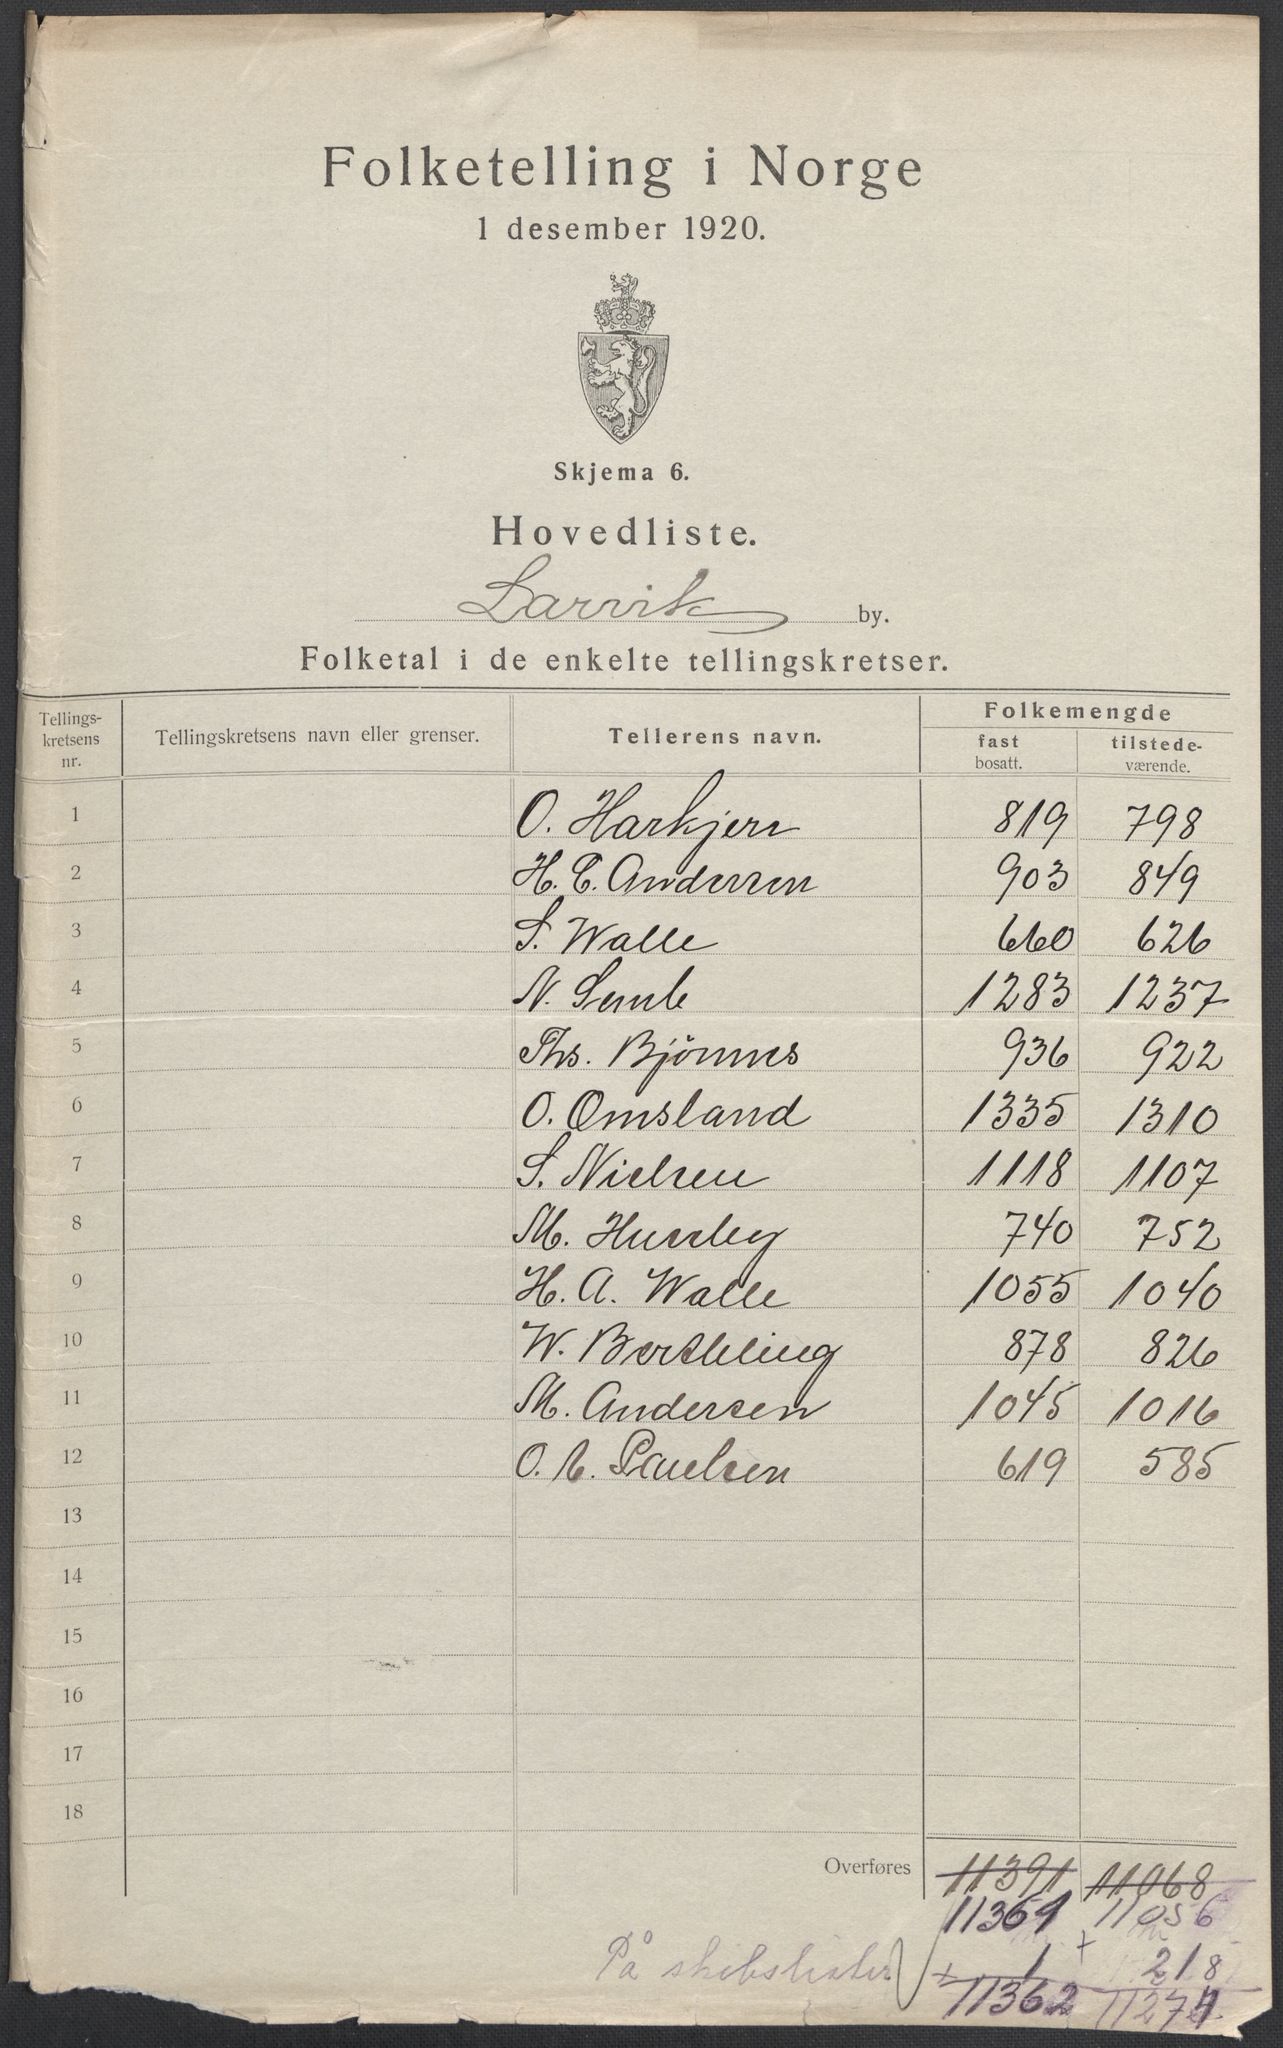 Folketelling i Norge
1 desember 1920.
Skjema 6.
Hovedliste.
Larvik by.
Folketal i de enkelte tellingskretser.
Tellings-kretsens nr. Tellingskretsens navn eller grenser. Tellerens navn. Folkemengde
fast bosatt. tilstede-værende.
1 O. Harkjerr 819 798
2 H. C. Andersen 903 849
3 S. Walle 660 626
4 N. Semb 1283 1237
5 Ths. Bjönnes 936 922
6 O. Omsland 1335 1310
7 S. Nielsen 1118 1107
8 M. Huseby 740 752
9 H. A. Walle 1055 1040
10 W. Berthling 878 826
11 M. Andersen 1045 1016
12 O. C. Paulsen 619 585
13
14
15
16
17
18
Overføres 11391 11068
11361 11056
På skibslister + 1 + 218
11362 11274